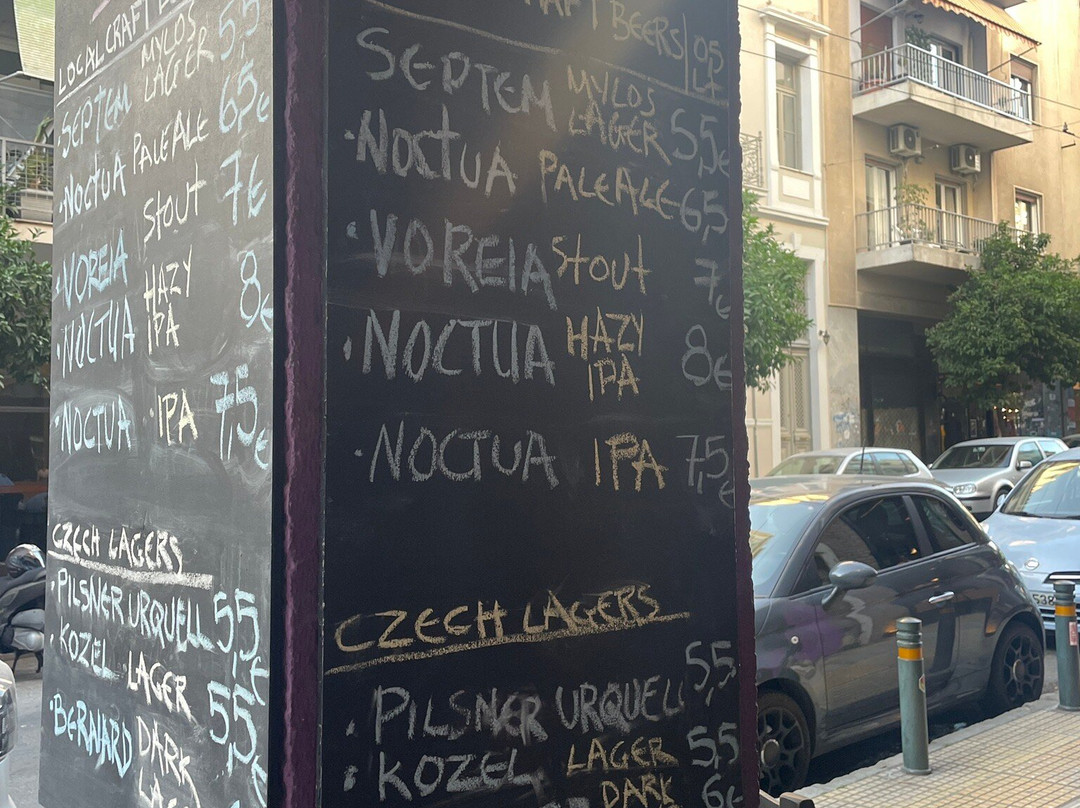 LOCAL CRAFT
SEPTEM MYLOS LAGER 5,5
NOCTUA PALE ALE 6,5€
VOREIA STOUT 7€
NOCTUA HAZY IPA 8€
NOCTUA IPA 7,5€
CZECH LAGERS
PILSNER URQUELL 5,5€
KOZEL LAGER 5,5€
BERNARD DARK
BEERS
SEPTEM MYLOS LAGER 5,5€
NOCTUA PALE ALE 6,5
VOREIA STOUT 7€
NOCTUA HAZY IPA 8€
NOCTUA IPA 7,5€
CZECH LAGERS
PILSNER URQUELL 5,5
KOZEL LAGER 5,5
DARK 6€